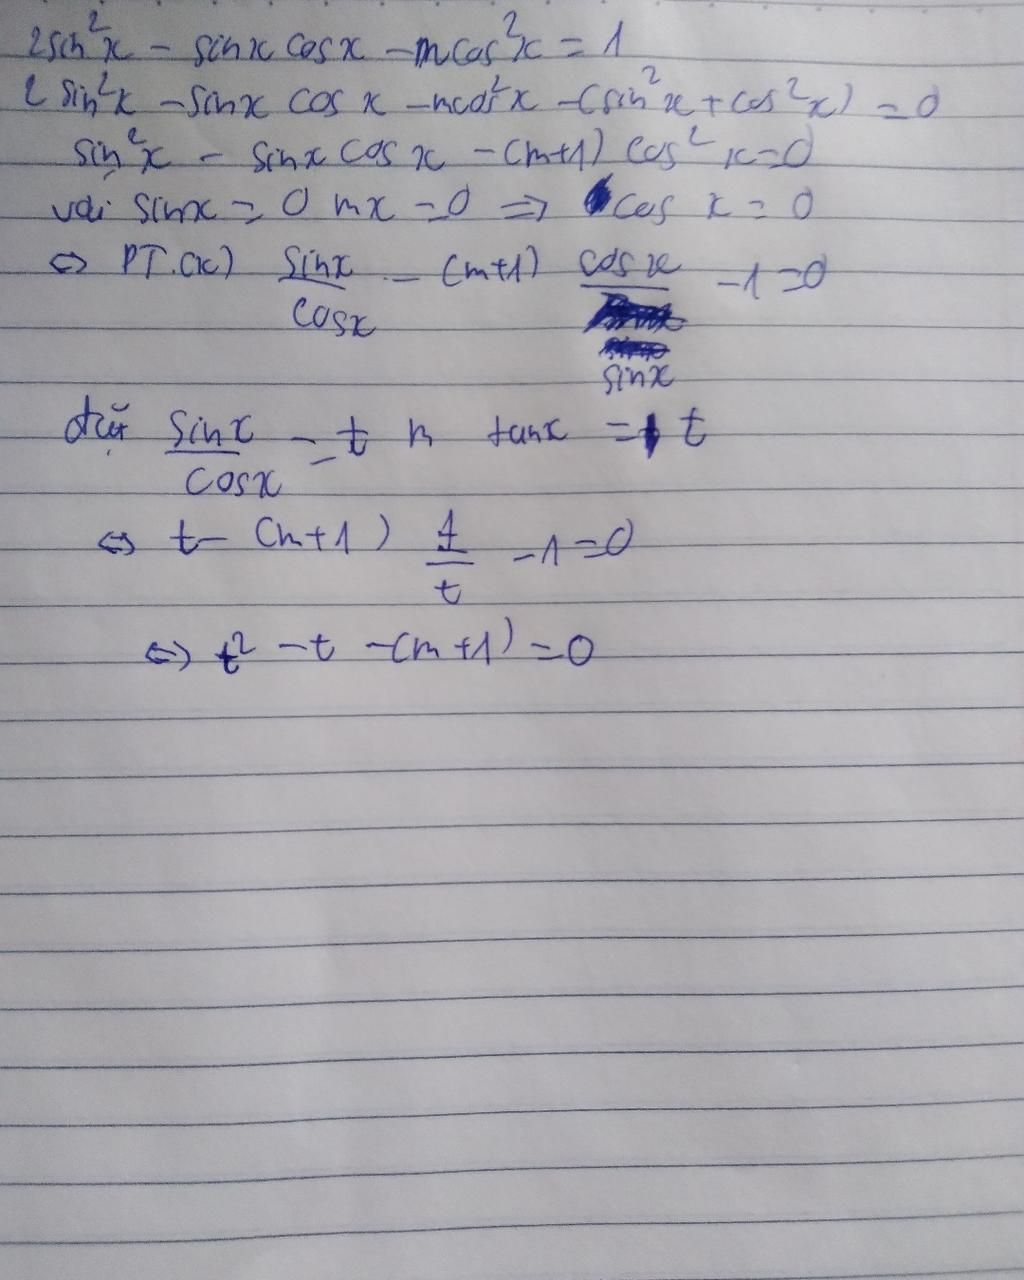 2sin²x - sinx cosx - mcos²x = 1
2 sin²x - sinx cos x - mcos²x - (sin²x + cos²x) = 0
sin²x - sinx cos x - (m+1) cos²x = 0
với sinx = 0 mx = 0 => cos x = 0
<=> PT.(x) sinx/cosx - (m+1) cosx/sinx - 1 = 0
đặt sinx/cosx = t tanx = t
<=> t - (m+1) 1/t - 1 = 0
<=> t² - t - (m+1) = 0